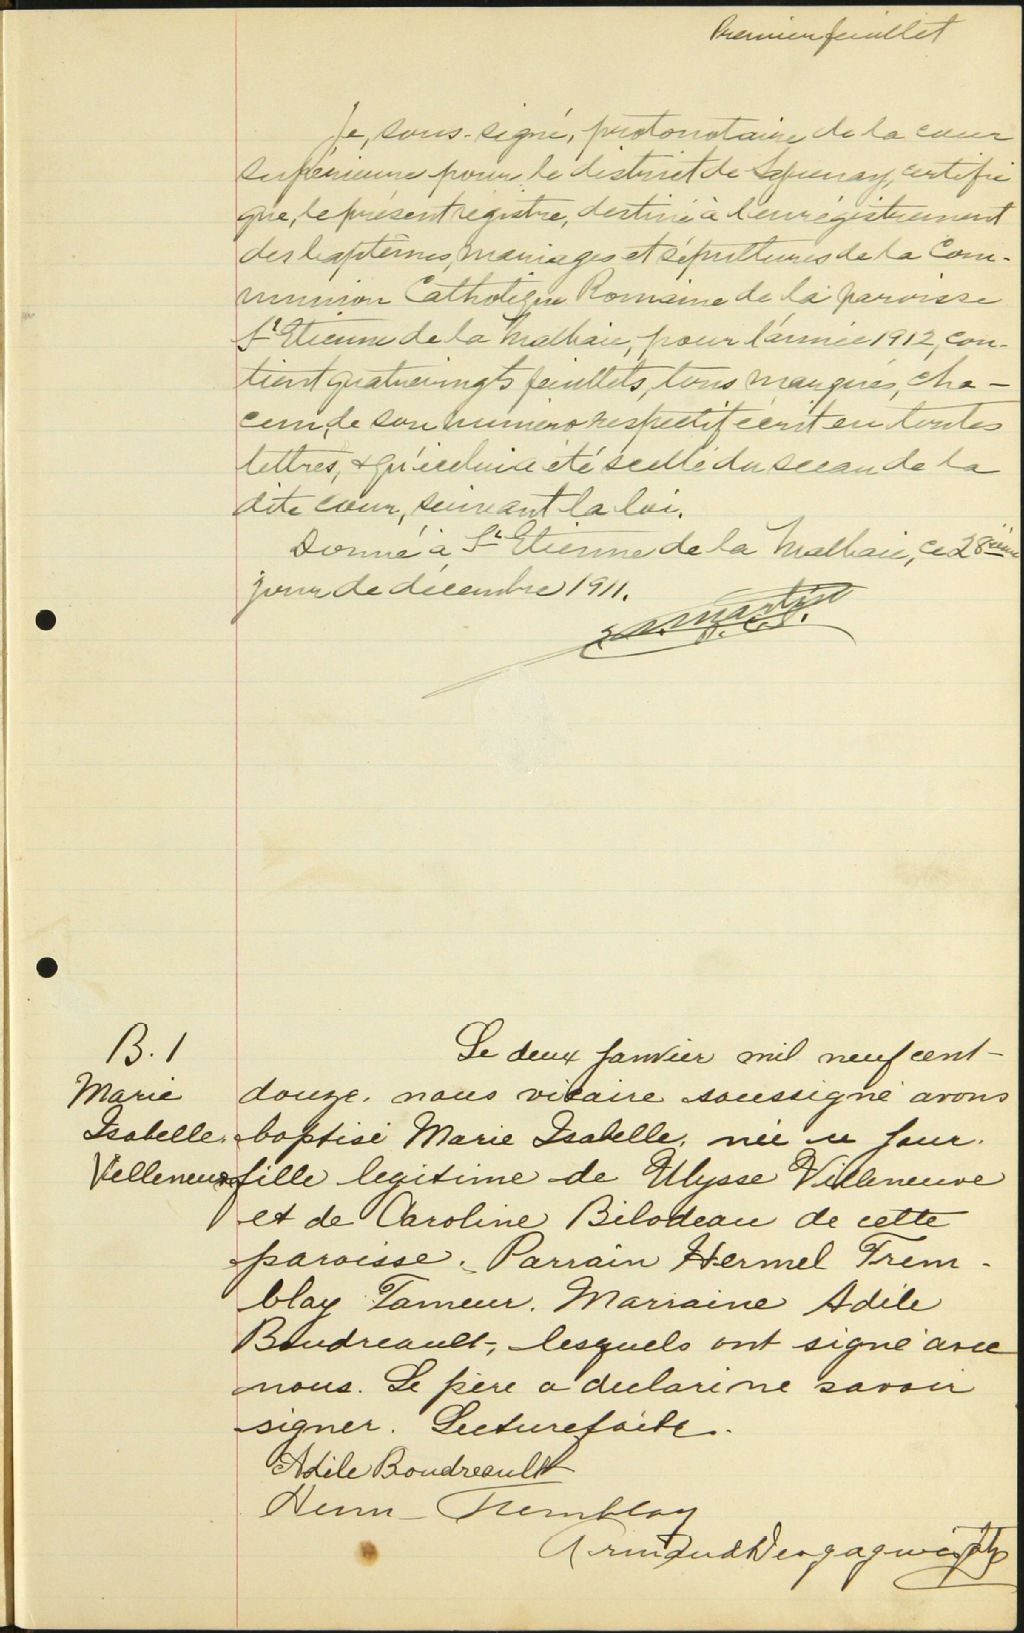 Premier feuillet
Je, sous-signé, protonotaire de la cour
supérieure pour le district de Saguenay, certifie
que, le présent régistre, destiné à l'enrégistrement
des baptêmes, mariages et sépultures de la Com-
munion Catholique Romaine de la paroisse
St Etienne de la Malbaie, pour l'année 1912, con-
tient quatrevingts feuillets, tous marqués, cha-
cun, de son numéro respectif écrit en toutes
lettres, & qu'icelui a été scellé du sceau de la
dite cour, suivant la loi.
Donné à St Etienne de la Malbaie, ce 28ième
jour de décembre 1911.
Martin
B. 1
Marie
Isabelle.
Velleneuve
Le deux janvier mil neuf cent-
douze. nous vicaire soussigné avons
baptisé Marie Isabelle, née ce jour.
fille legitime de Ulysse Villeneuve
et de Caroline Bilodeau de cette
paroisse. Parrain Hermel Trem-
blay Tameur. Marraine Adile
Boudreault, lesquels ont signé avec
nous. Le père a declaré ne savoir
signer. Lecture faite.
Adile Boudreault
Tremblay
Armand